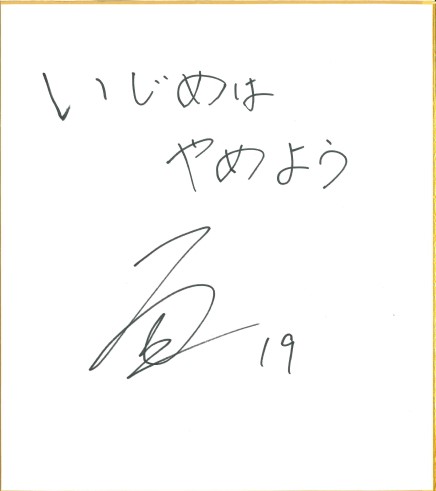 いじめは
やめよう
19